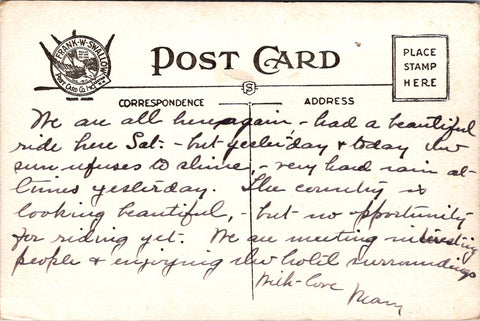 FRANK·W·SWALLOW
POST CARD CO. INC.
POST CARD
PLACE
STAMP
HERE
CORRESPONDENCE
ADDRESS
We are all here again - had a beautiful
ride here Sat. - but yesterday & today the
sun refuses to shine, - very hard rain at
times yesterday. The country is
looking beautiful, - but no opportunity
for riding yet. We are meeting interesting
people & enjoying the hotel surroundings
With love
Mary